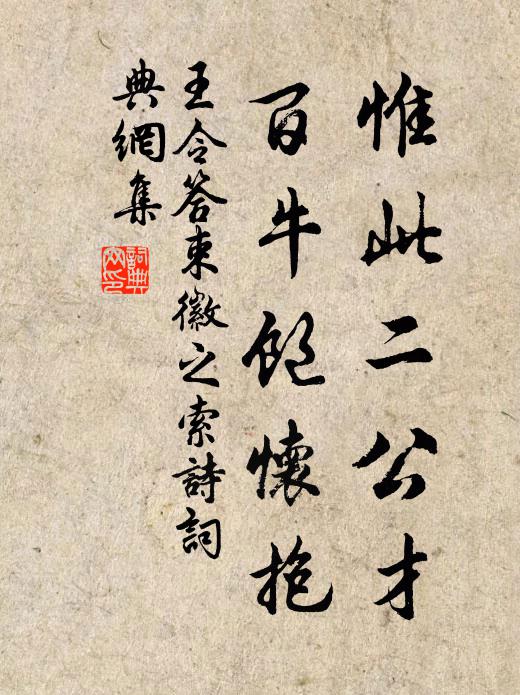 惟此二公才
百牛饱懷抱
王令答束徽之索詩詞
典網集
詞典
網印